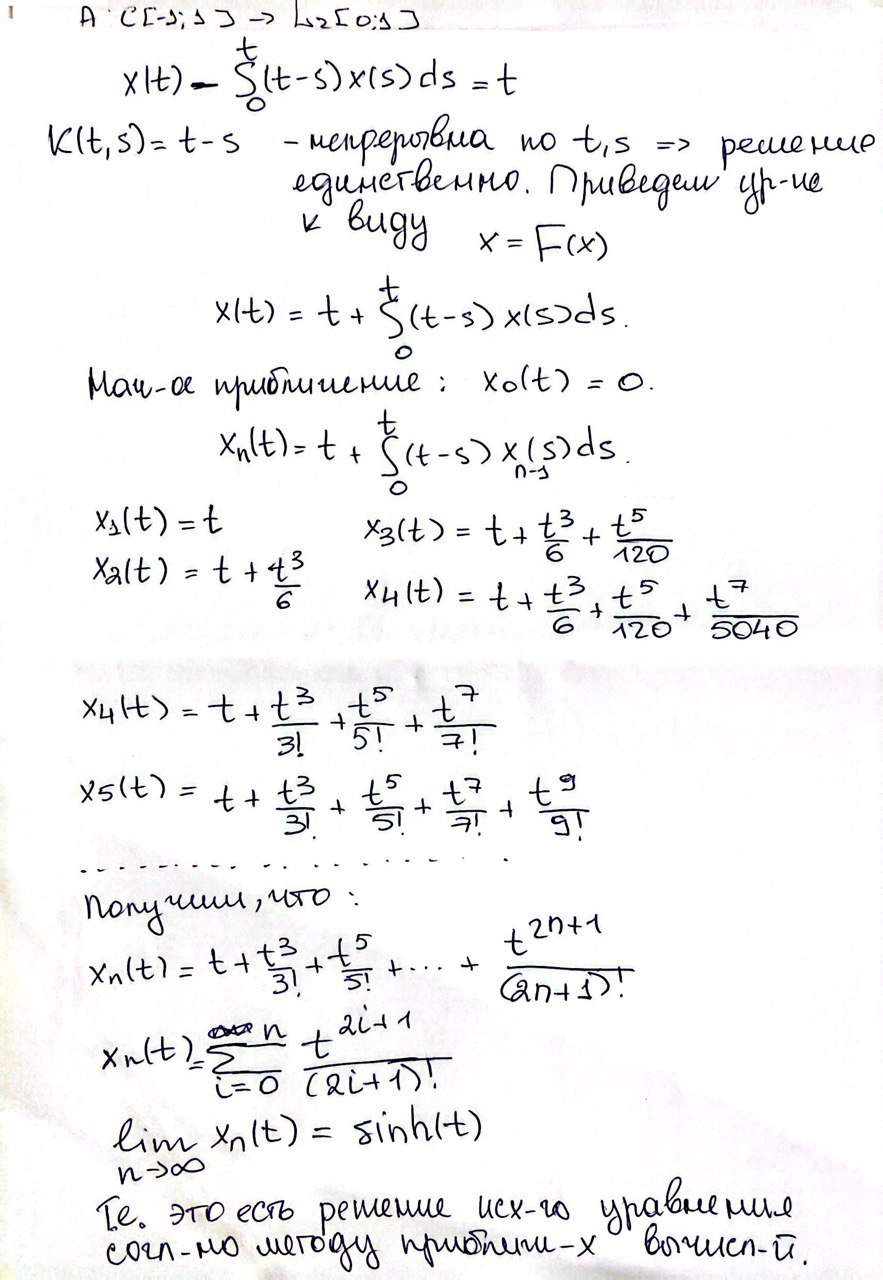 A C[-1;1] → L2[0;1]
x(t) - ∫₀ᵗ (t-s) x(s) ds = t
K(t,s) = t-s - непрерывна по t,s => решение
единственно. Приведем ур-ие
к виду x = F(x)
x(t) = t + ∫₀ᵗ (t-s) x(s) ds.
Нач-ое приближение: x₀(t) = 0.
xₙ(t) = t + ∫₀ᵗ (t-s) xₙ₋₁(s) ds.
x₁(t) = t
x₂(t) = t + t³/6
x₃(t) = t + t³/6 + t⁵/120
x₄(t) = t + t³/6 + t⁵/120 + t⁷/5040
x₄(t) = t + t³/3! + t⁵/5! + t⁷/7!
x₅(t) = t + t³/3! + t⁵/5! + t⁷/7! + t⁹/9!
. . . . . . . . . . . . . . . .
Получим, что:
xₙ(t) = t + t³/3! + t⁵/5! + ... + t²ⁿ⁺¹/(2n+1)!
xₙ(t) = Σ_{i=0}^{n} t²ⁱ⁺¹/(2i+1)!
lim_{n→∞} xₙ(t) = sinh(t)
Т.е. это есть решение исх-го уравнения
согл-но методу приближ-х вычисл-й.